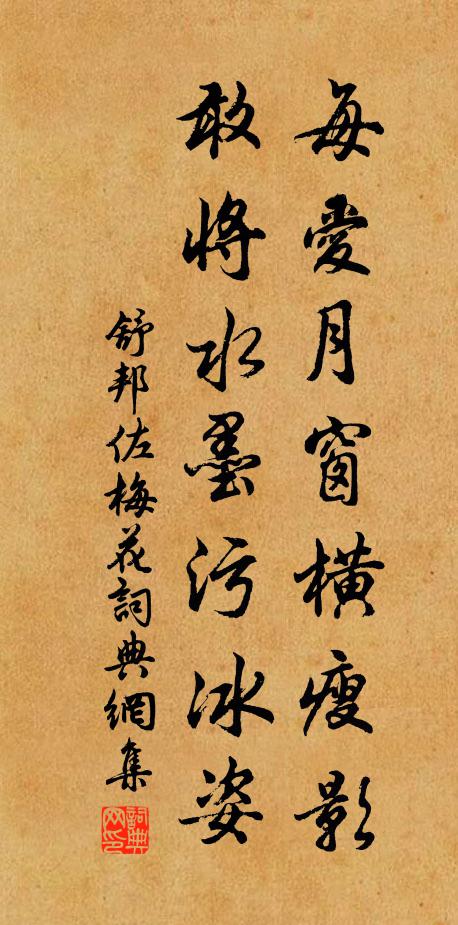 每愛月窗橫瘦影
敢將水墨污冰姿
舒邦佐梅花詞典網集
詞典網印